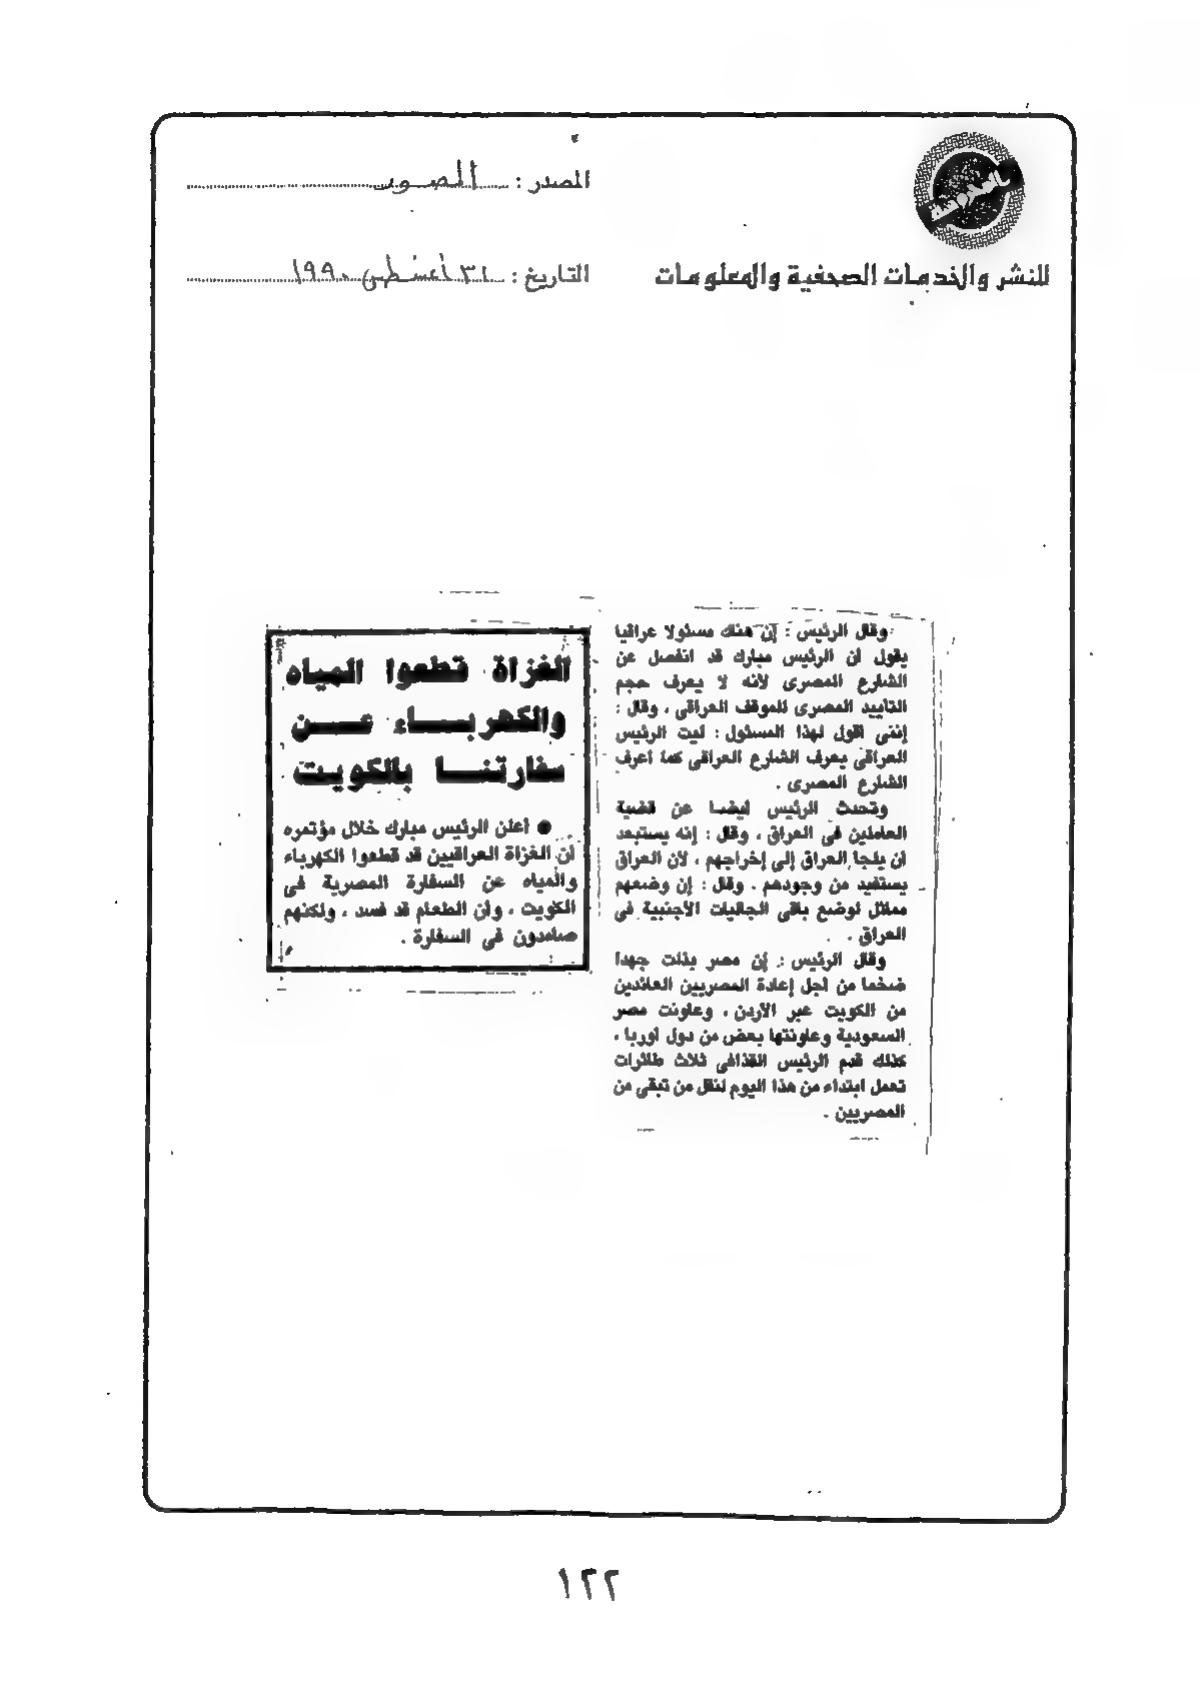 المصدر : المصور
للنشر والخدمات الصحفية والمعلومات
التاريخ : ٣١ أغسطس ١٩٩٠
وقال الرئيس : إن هناك مسئولا عراقيا
يقول أن الرئيس مبارك قد انفصل عن
الشارع المصرى لأنه لا يعرف حجم
التأييد المصرى للموقف العراقى ، وقال :
إننى اقول لهذا المسئول : ليت الرئيس
العراقى يعرف الشارع العراقى كما اعرف
الشارع المصرى .
وتحدث الرئيس ايضا عن قضية
العاملين فى العراق ، وقال : إنه يستبعد
ان يلجا العراق إلى إخراجهم ، لأن العراق
يستفيد من وجودهم . وقال : إن وضعهم
مماثل لوضع باقى الجاليات الأجنبية فى
العراق .
وقال الرئيس : إن مصر بذلت جهدا
ضخما من اجل إعادة المصريين العائدين
من الكويت عبر الأردن ، وعاونت مصر
السعودية وعاونتها بعض من دول اوربا ،
كذلك قدم الرئيس القذافى ثلاث طائرات
تعمل ابتداء من هذا اليوم لنقل من تبقى من
المصريين .
الغزاة قطعوا المياه
والكهربـاء عـن
سفارتنـا بالكويت
● أعلن الرئيس مبارك خلال مؤتمره
أن الغزاة العراقيين قد قطعوا الكهرباء
والمياه عن السفارة المصرية فى
الكويت ، وأن الطعام قد فسد ، ولكنهم
صامدون فى السفارة .
١٢٢